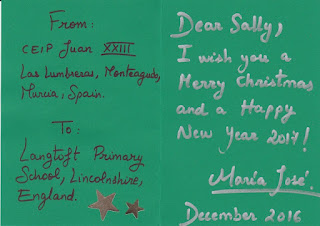 From:
CEIP Juan XXIII
Las Lumbreras, Monteagudo,
Murcia, Spain.
To:
Langtoft Primary
School, Lincolnshire,
England.
Dear Sally,
I wish you a
Merry Christmas
and a Happy
New Year 2017!
María José.
December 2016